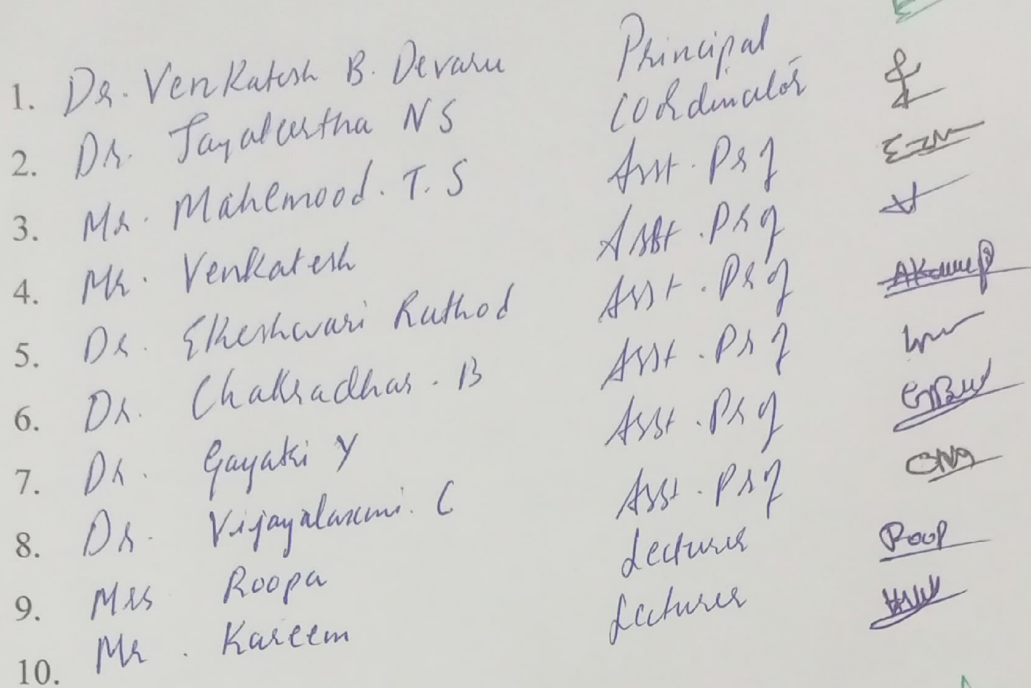 1. Dr. Venkatesh B. Devaru Principal
2. Dr. Jayateertha NS Coordinator
3. Mr. Mahemood. T. S Asst. Prof
4. Mr. Venkatesh Asst. Prof
5. Dr. Ekeshwari Rathod Asst. Prof
6. Dr. Chakradhar. B Asst. Prof
7. Dr. Gayatri Y Asst. Prof
8. Dr. Vijayalaxmi. C Asst. Prof
9. Mrs Roopa Lecturer Roop
10. Mr. Kareem Lecturer